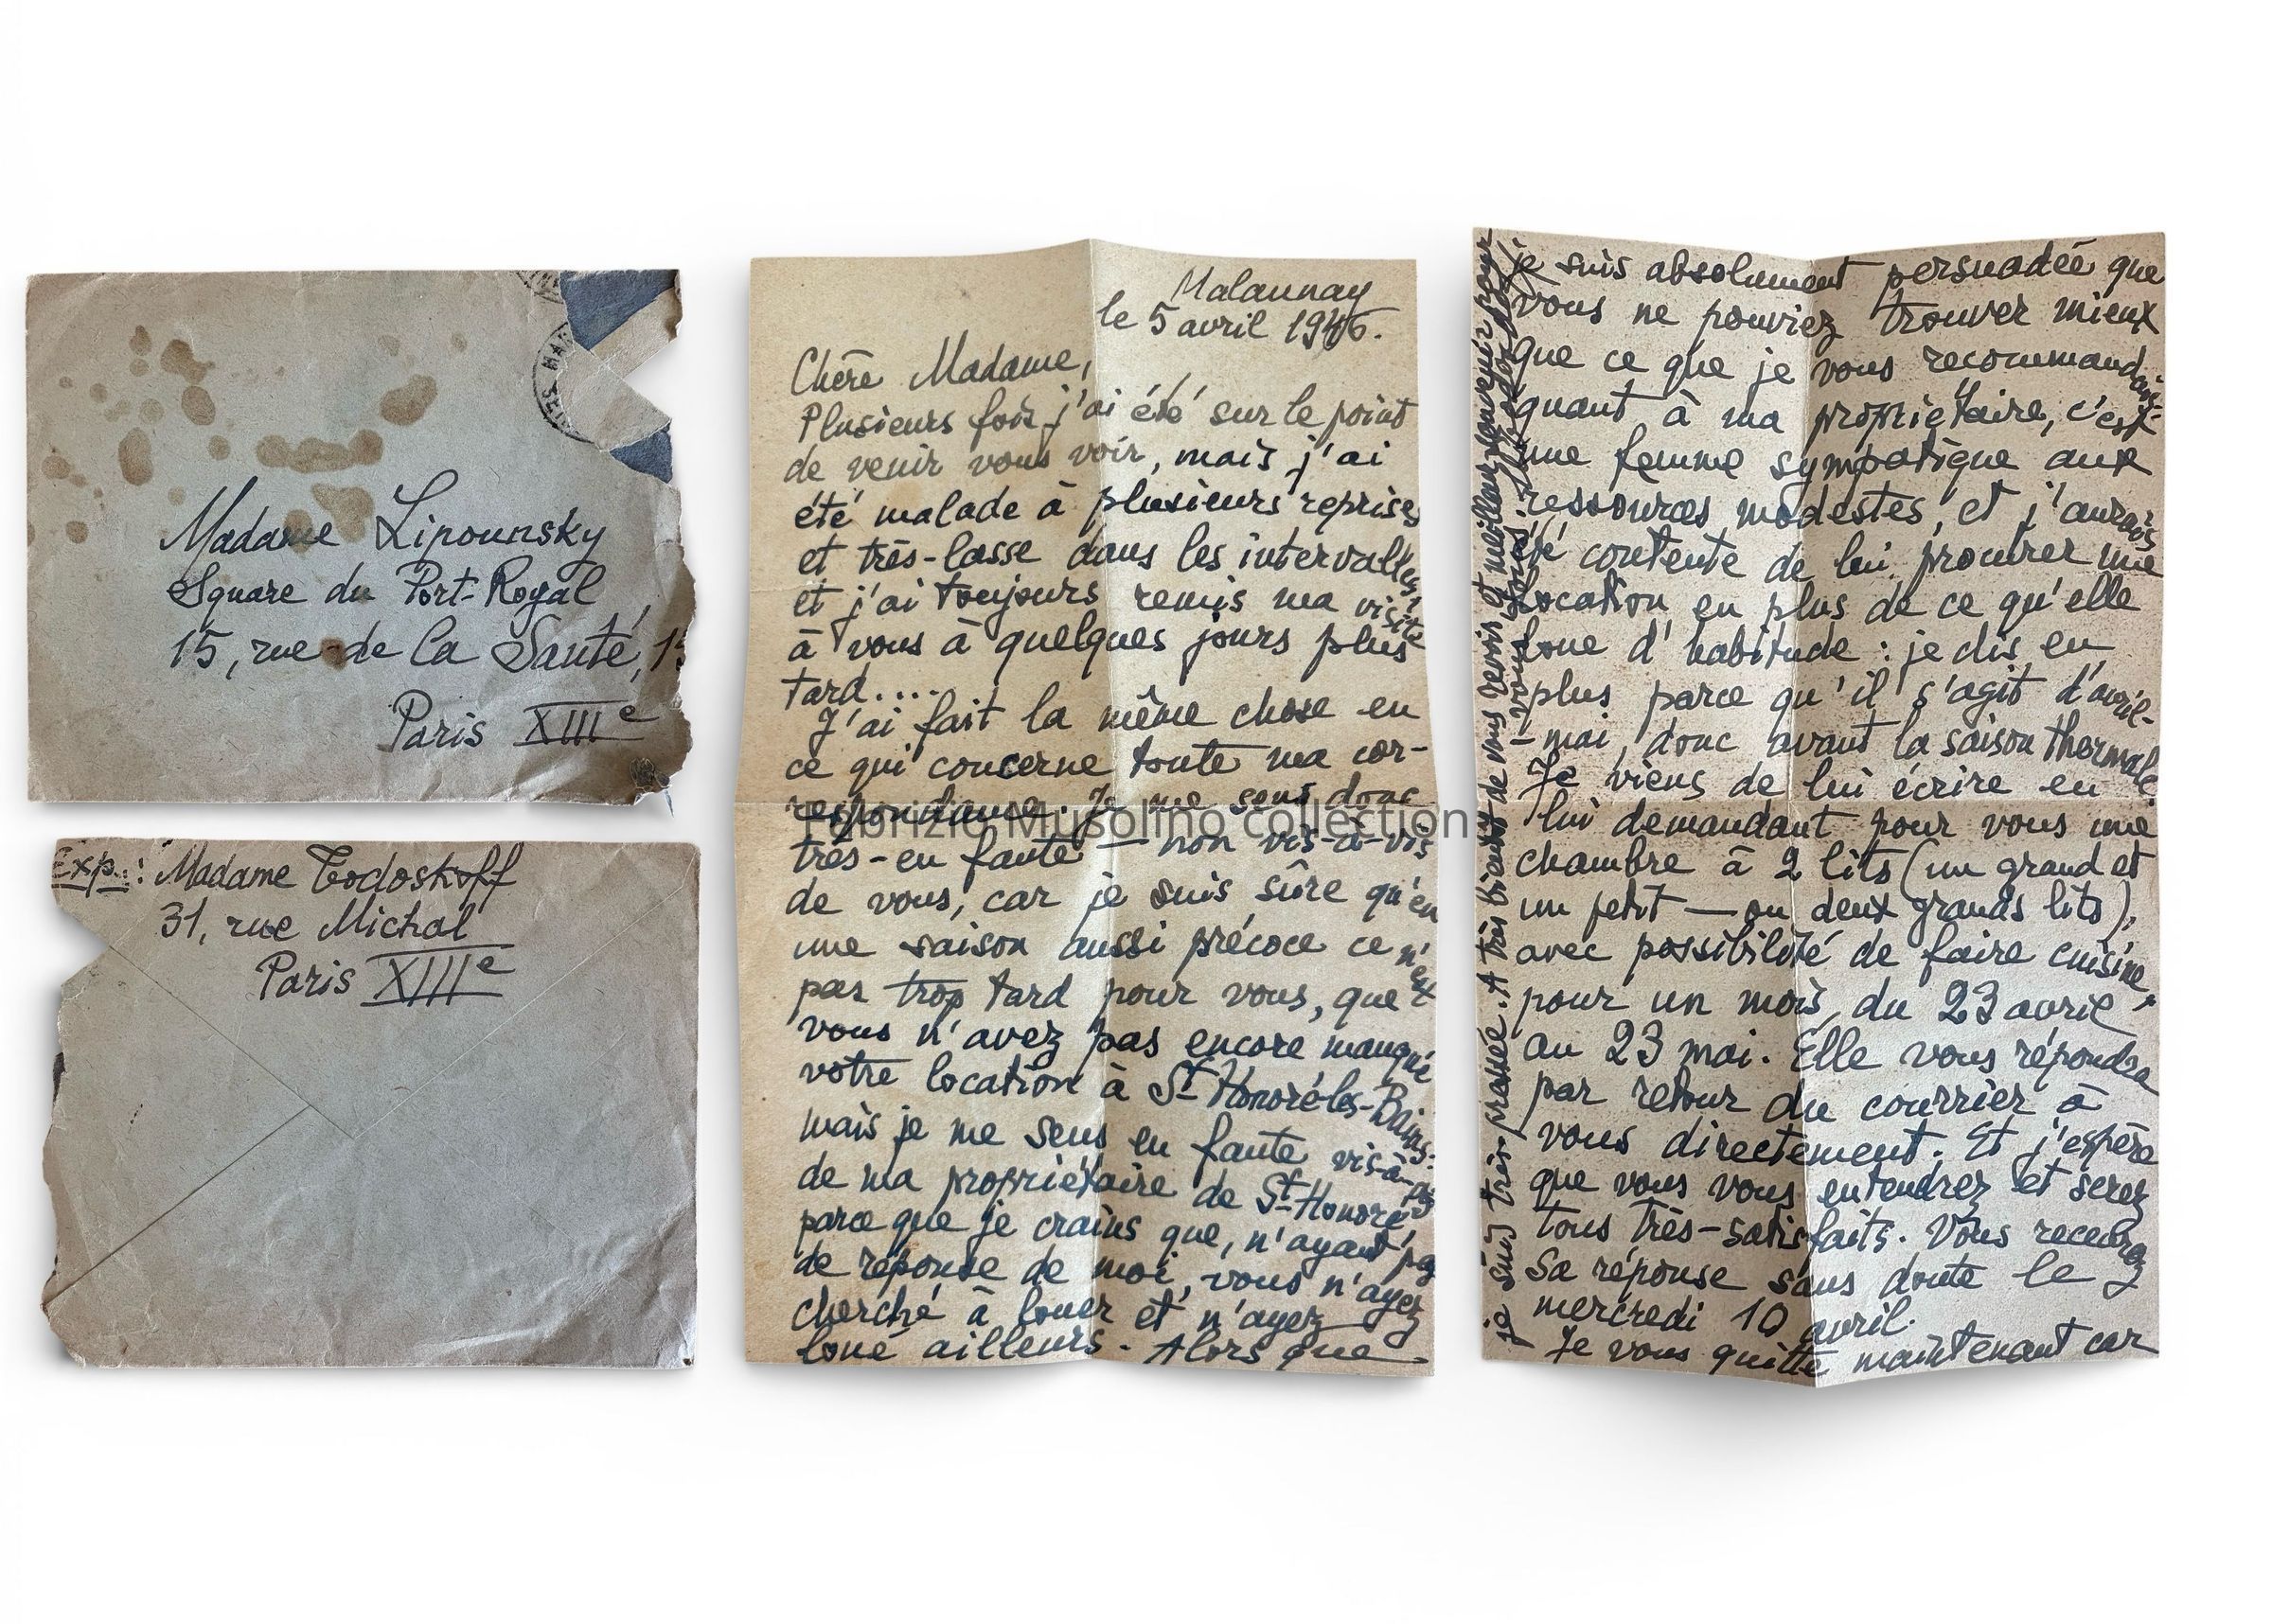 Madame Lipounsky
Square du Port-Royal
15, rue de la Santé, 15
Paris XIIIe
Exp.: Madame Todoskoff
31, rue Michal
Paris XIIIe
Malaunay
le 5 avril 1946.
Chère Madame,
Plusieurs fois j'ai été sur le point
de venir vous voir, mais j'ai
été malade à plusieurs reprises
et très-lasse dans les intervalles
et j'ai toujours remis ma visite
à vous à quelques jours plus
tard....
J'ai fait la même chose en
ce qui concerne toute ma cor-
respondance. Je me sens donc
très-en faute — non vis-à-vis
de vous, car je suis sûre qu'en
une saison aussi précoce ce n'est
par trop tard pour vous, que
vous n'avez pas encore manqué
votre location à St Honoré-les-Bains.
mais je me sens en faute vis-à-vis
de ma propriétaire de St-Honoré,
parce que je crains que, n'ayant pas
de réponse de moi, vous n'ayez
cherché à louer et n'ayez
loué ailleurs. Alors que
je suis absolument persuadée que
vous ne pouviez trouver mieux
que ce que je vous recommandais.
quant à ma propriétaire, c'est
une femme sympatique aux
ressources modestes, et j'aurais
été contente de lui procurer une
location en plus de ce qu'elle
loue d'habitude : je dis en
plus parce qu'il s'agit d'avril-
-mai, donc avant la saison thermale
Je viens de lui écrire en
lui demandant pour vous une
chambre à 2 lits (un grand et
un petit — ou deux grands lits),
avec possibilité de faire cuisine,
pour un mois, du 23 avril
au 23 mai. Elle vous répondra
par retour du courrier à
vous directement. Et j'espère
que vous vous entendrez et serez
tous très-satisfaits. Vous recevrez
sa réponse sans doute le
mercredi 10 avril.
Je vous quitte maintenant car
je suis très-pressée. A très bientôt de vous revoir et meilleur souvenir pour
vous tous.
Fabrizio Musolino collection